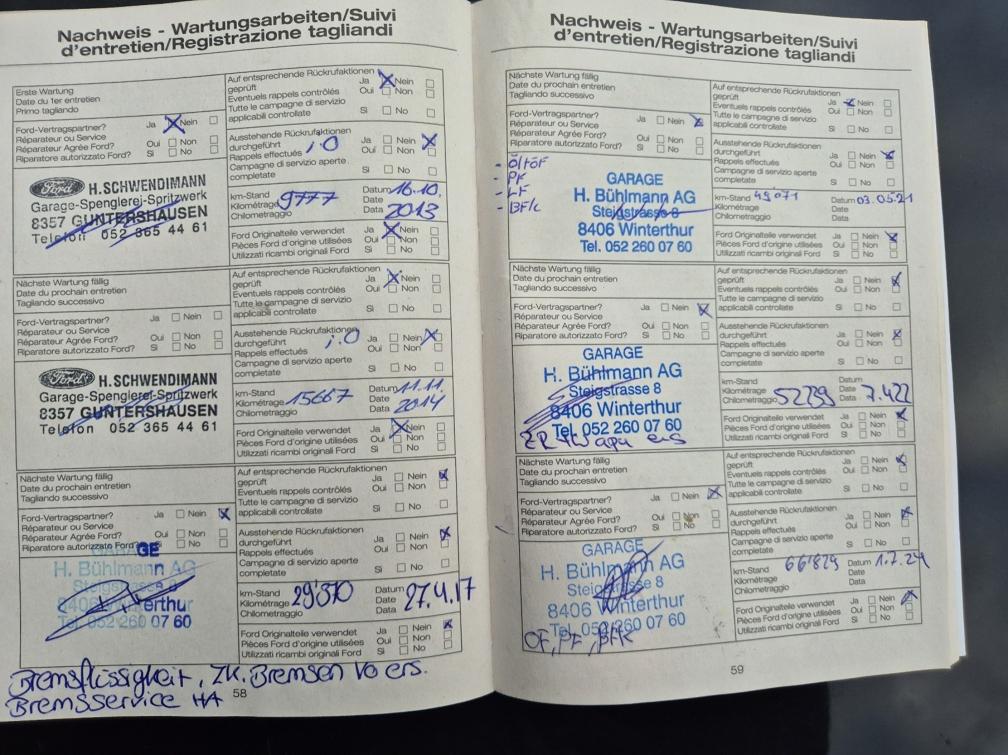 Nachweis - Wartungsarbeiten/Suivi
d'entretien/Registrazione tagliandi
Erste Wartung
Date du 1er entretien
Primo tagliando
Auf entsprechende Rückrufaktionen
geprüft
Ja Nein
Eventuels rappels contrôlés
Oui Non
Tutte le campagne di servizio
applicabili controllate
Si No
Ford-Vertragspartner?
Ja Nein
Réparateur ou Service
Réparateur Agrée Ford?
Oui Non
Riparatore autorizzato Ford?
Si No
Ausstehende Rückrufaktionen
durchgeführt
Ja Nein
Rappels effectués
Oui Non
Campagne di servizio aperte
completate
Si No
i.O
Ford H. SCHWENDIMANN
Garage-Spenglerei-Spritzwerk
8357 GUNTERSHAUSEN
Telefon 052 365 44 61
km-Stand
Kilométrage
Chilometraggio
9777
Datum
Date
Data
16.10.
2013
Ford Originalteile verwendet
Ja Nein
Pièces Ford d'origine utilisées
Oui Non
Utilizzati ricambi originali Ford
Si No
Nächste Wartung fällig
Date du prochain entretien
Tagliando successivo
Auf entsprechende Rückrufaktionen
geprüft
Ja Nein
Eventuels rappels contrôlés
Oui Non
Tutte le campagne di servizio
applicabili controllate
Si No
Ford-Vertragspartner?
Ja Nein
Réparateur ou Service
Réparateur Agrée Ford?
Oui Non
Riparatore autorizzato Ford?
Si No
Ausstehende Rückrufaktionen
durchgeführt
Ja Nein
Rappels effectués
Oui Non
Campagne di servizio aperte
completate
Si No
i.O
Ford H. SCHWENDIMANN
Garage-Spenglerei-Spritzwerk
8357 GUNTERSHAUSEN
Telefon 052 365 44 61
km-Stand
Kilométrage
Chilometraggio
15667
Datum
Date
Data
11.11.
2014
Ford Originalteile verwendet
Ja Nein
Pièces Ford d'origine utilisées
Oui Non
Utilizzati ricambi originali Ford
Si No
Nächste Wartung fällig
Date du prochain entretien
Tagliando successivo
Auf entsprechende Rückrufaktionen
geprüft
Ja Nein
Eventuels rappels contrôlés
Oui Non
Tutte le campagne di servizio
applicabili controllate
Si No
Ford-Vertragspartner?
Ja Nein
Réparateur ou Service
Réparateur Agrée Ford?
Oui Non
Riparatore autorizzato Ford?
Si No
Ausstehende Rückrufaktionen
durchgeführt
Ja Nein
Rappels effectués
Oui Non
Campagne di servizio aperte
completate
Si No
GARAGE
H. Bühlmann AG
Steigstrasse 8
8406 Winterthur
Tel. 052 260 07 60
km-Stand
Kilométrage
Chilometraggio
29'370
Datum
Date
Data
27.4.17
Ford Originalteile verwendet
Ja Nein
Pièces Ford d'origine utilisées
Oui Non
Utilizzati ricambi originali Ford
Si No
Bremsflüssigkeit, ZK. Bremsen Vo ers.
Bremsservice HA
58
Nachweis - Wartungsarbeiten/Suivi
d'entretien/Registrazione tagliandi
Nächste Wartung fällig
Date du prochain entretien
Tagliando successivo
Auf entsprechende Rückrufaktionen
geprüft
Ja Nein
Eventuels rappels contrôlés
Oui Non
Tutte le campagne di servizio
applicabili controllate
Si No
Ford-Vertragspartner?
Ja Nein
Réparateur ou Service
Réparateur Agrée Ford?
Oui Non
Riparatore autorizzato Ford?
Si No
Ausstehende Rückrufaktionen
durchgeführt
Ja Nein
Rappels effectués
Oui Non
Campagne di servizio aperte
completate
Si No
- Öl+ÖF
- PF
- LF
- BFlc
GARAGE
H. Bühlmann AG
Steigstrasse 8
8406 Winterthur
Tel. 052 260 07 60
km-Stand
Kilométrage
Chilometraggio
49071
Datum
Date
Data
03.05.21
Ford Originalteile verwendet
Ja Nein
Pièces Ford d'origine utilisées
Oui Non
Utilizzati ricambi originali Ford
Si No
Nächste Wartung fällig
Date du prochain entretien
Tagliando successivo
Auf entsprechende Rückrufaktionen
geprüft
Ja Nein
Eventuels rappels contrôlés
Oui Non
Tutte le campagne di servizio
applicabili controllate
Si No
Ford-Vertragspartner?
Ja Nein
Réparateur ou Service
Réparateur Agrée Ford?
Oui Non
Riparatore autorizzato Ford?
Si No
Ausstehende Rückrufaktionen
durchgeführt
Ja Nein
Rappels effectués
Oui Non
Campagne di servizio aperte
completate
Si No
GARAGE
H. Bühlmann AG
Steigstrasse 8
8406 Winterthur
Tel. 052 260 07 60
km-Stand
Kilométrage
Chilometraggio
52289
Datum
Date
Data
7.4.22
Ford Originalteile verwendet
Ja Nein
Pièces Ford d'origine utilisées
Oui Non
Utilizzati ricambi originali Ford
Si No
Nächste Wartung fällig
Date du prochain entretien
Tagliando successivo
Auf entsprechende Rückrufaktionen
geprüft
Ja Nein
Eventuels rappels contrôlés
Oui Non
Tutte le campagne di servizio
applicabili controllate
Si No
Ford-Vertragspartner?
Ja Nein
Réparateur ou Service
Réparateur Agrée Ford?
Oui Non
Riparatore autorizzato Ford?
Si No
Ausstehende Rückrufaktionen
durchgeführt
Ja Nein
Rappels effectués
Oui Non
Campagne di servizio aperte
completate
Si No
GARAGE
H. Bühlmann AG
Steigstrasse 8
8406 Winterthur
Tel. 052 260 07 60
OF, PF,
km-Stand
Kilométrage
Chilometraggio
66'829
Datum
Date
Data
1.7.24
Ford Originalteile verwendet
Ja Nein
Pièces Ford d'origine utilisées
Oui Non
Utilizzati ricambi originali Ford
Si No
59